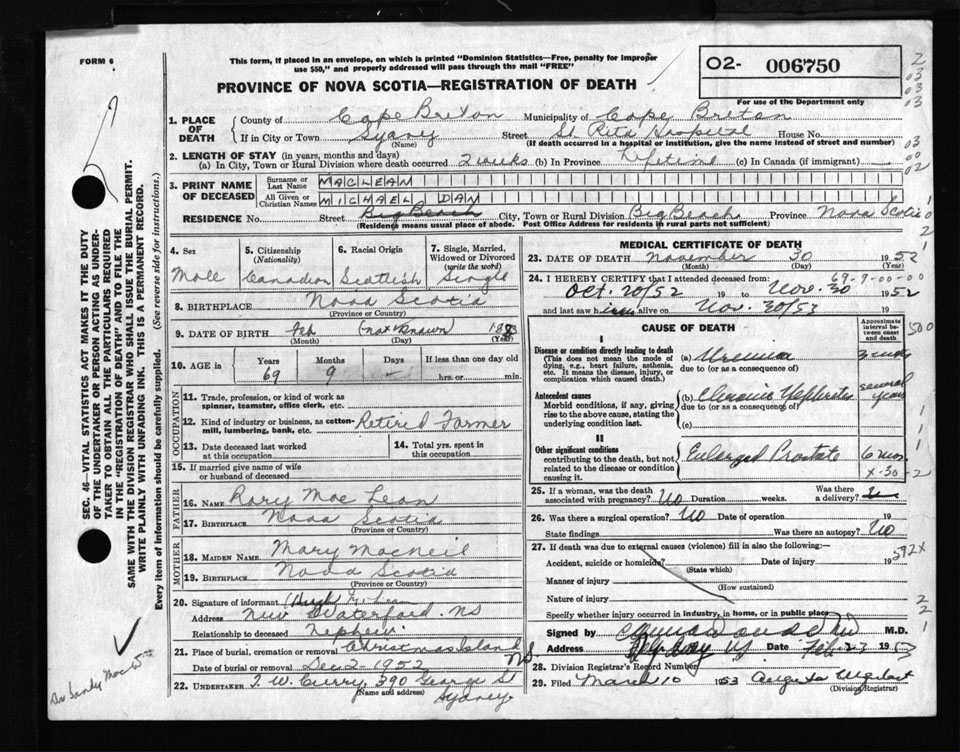 FORM 6
This form, if placed in an envelope, on which is printed "Dominion Statistics—Free, penalty for improper
use $50," and properly addressed will pass through the mail "FREE"
O2- 006750
PROVINCE OF NOVA SCOTIA—REGISTRATION OF DEATH
For use of the Department only
1. PLACE OF DEATH County of Cape Breton Municipality of Cape Breton
If in City or Town Sydney (Name) Street St. Rita Hospital House No.
(If death occurred in a hospital or institution, give the name instead of street and number)
2. LENGTH OF STAY (in years, months and days)
(a) In City, Town or Rural Division where death occurred 2 weeks (b) In Province Lifetime (c) In Canada (if immigrant)
3. PRINT NAME OF DECEASED Surname or Last Name MACLEAN
All Given or Christian Names MICHAEL DAN
RESIDENCE No. Street Big Beach City, Town or Rural Division Big Beach Province Nova Scotia
(Residence means usual place of abode. Post Office Address for residents in rural parts not sufficient)
4. Sex Male
5. Citizenship (Nationality) Canadian
6. Racial Origin Scottish
7. Single, Married, Widowed or Divorced (write the word) Single
8. BIRTHPLACE Nova Scotia
(Province or Country)
9. DATE OF BIRTH Feb (not known) 1883
(Month) (Day) (Year)
10. AGE in Years 69 Months 9 Days - If less than one day old hrs. or min.
OCCUPATION
11. Trade, profession, or kind of work as spinner, teamster, office clerk, etc.
12. Kind of industry or business, as cotton-mill, lumbering, bank, etc. Retired Farmer
13. Date deceased last worked at this occupation
14. Total yrs. spent in this occupation
15. If married give name of wife or husband of deceased
FATHER
16. NAME Rory MacLean
17. BIRTHPLACE Nova Scotia
MOTHER
18. MAIDEN NAME Mary MacNeil
19. BIRTHPLACE Nova Scotia
(Province or Country)
20. Signature of informant (Hugh)
Address New Waterford NS
Relationship to deceased Nephew
21. Place of burial, cremation or removal Christmas Island NS
Date of burial or removal Dec 2 - 1952
22. UNDERTAKER T. W. Curry, 390 George St
(Name and address) Sydney
MEDICAL CERTIFICATE OF DEATH
23. DATE OF DEATH November 30 1952
(Month) (Day) (Year)
69-9-00-00
24. I HEREBY CERTIFY that I attended deceased from:
Oct. 20/52 19 to Nov. 30 1952
and last saw him alive on Nov. 30/53 19
CAUSE OF DEATH
Approximate interval between onset and death
I
Disease or condition directly leading to death (a) Uremia
(This does not mean the mode of dying, e.g., heart failure, asthenia, etc. It means the disease, injury, or complication which caused death.)
due to (or as a consequence of)
Antecedent causes (b) Chronic Nephritis several years
Morbid conditions, if any, giving rise to the above cause, stating the underlying condition last.
due to (or as a consequence of)
(c)
II
Other significant conditions contributing to the death, but not related to the disease or condition causing it. Enlarged Prostate 6 mos.
X-30-2
25. If a woman, was the death associated with pregnancy? No Duration weeks. Was there a delivery?
26. Was there a surgical operation? No Date of operation 19
State findings Was there an autopsy? No
27. If death was due to external causes (violence) fill in also the following:—
592X
Accident, suicide or homicide? (State which) Date of injury 19
Manner of injury (How sustained)
Nature of injury
Specify whether injury occurred in industry, in home, or in public place
Signed by M.D.
Address Date Feb. 23 1953
28. Division Registrar's Record Number
29. Filed March 10 1953 (Division Registrar)
SEC. 46—VITAL STATISTICS ACT MAKES IT THE DUTY
OF THE UNDERTAKER OR PERSON ACTING AS UNDER-
TAKER TO OBTAIN ALL THE PARTICULARS REQUIRED
IN THE "REGISTRATION OF DEATH" AND TO FILE THE
SAME WITH THE DIVISION REGISTRAR WHO SHALL ISSUE THE BURIAL PERMIT.
WRITE PLAINLY WITH UNFADING INK. THIS IS A PERMANENT RECORD.
Every item of information should be carefully supplied. (See reverse side for instructions.)